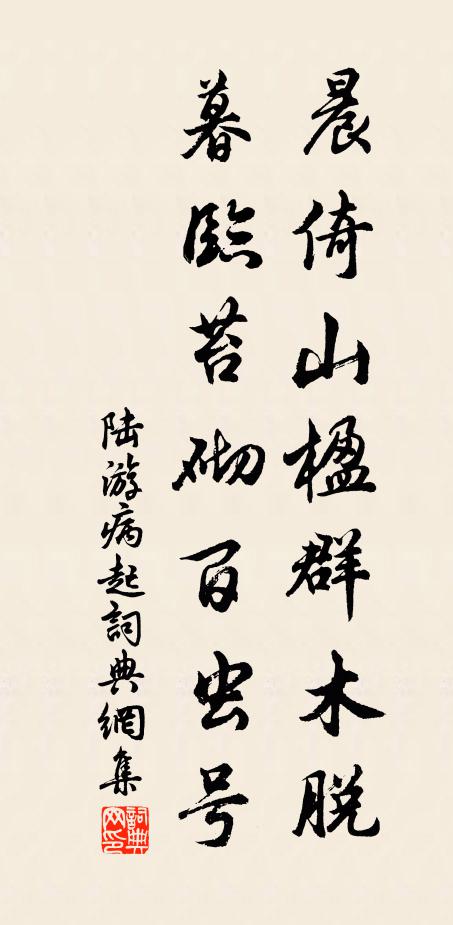 晨倚山楹群木脱
暮临苔砌百虫号
陆游病起詞典網集
詞典网印